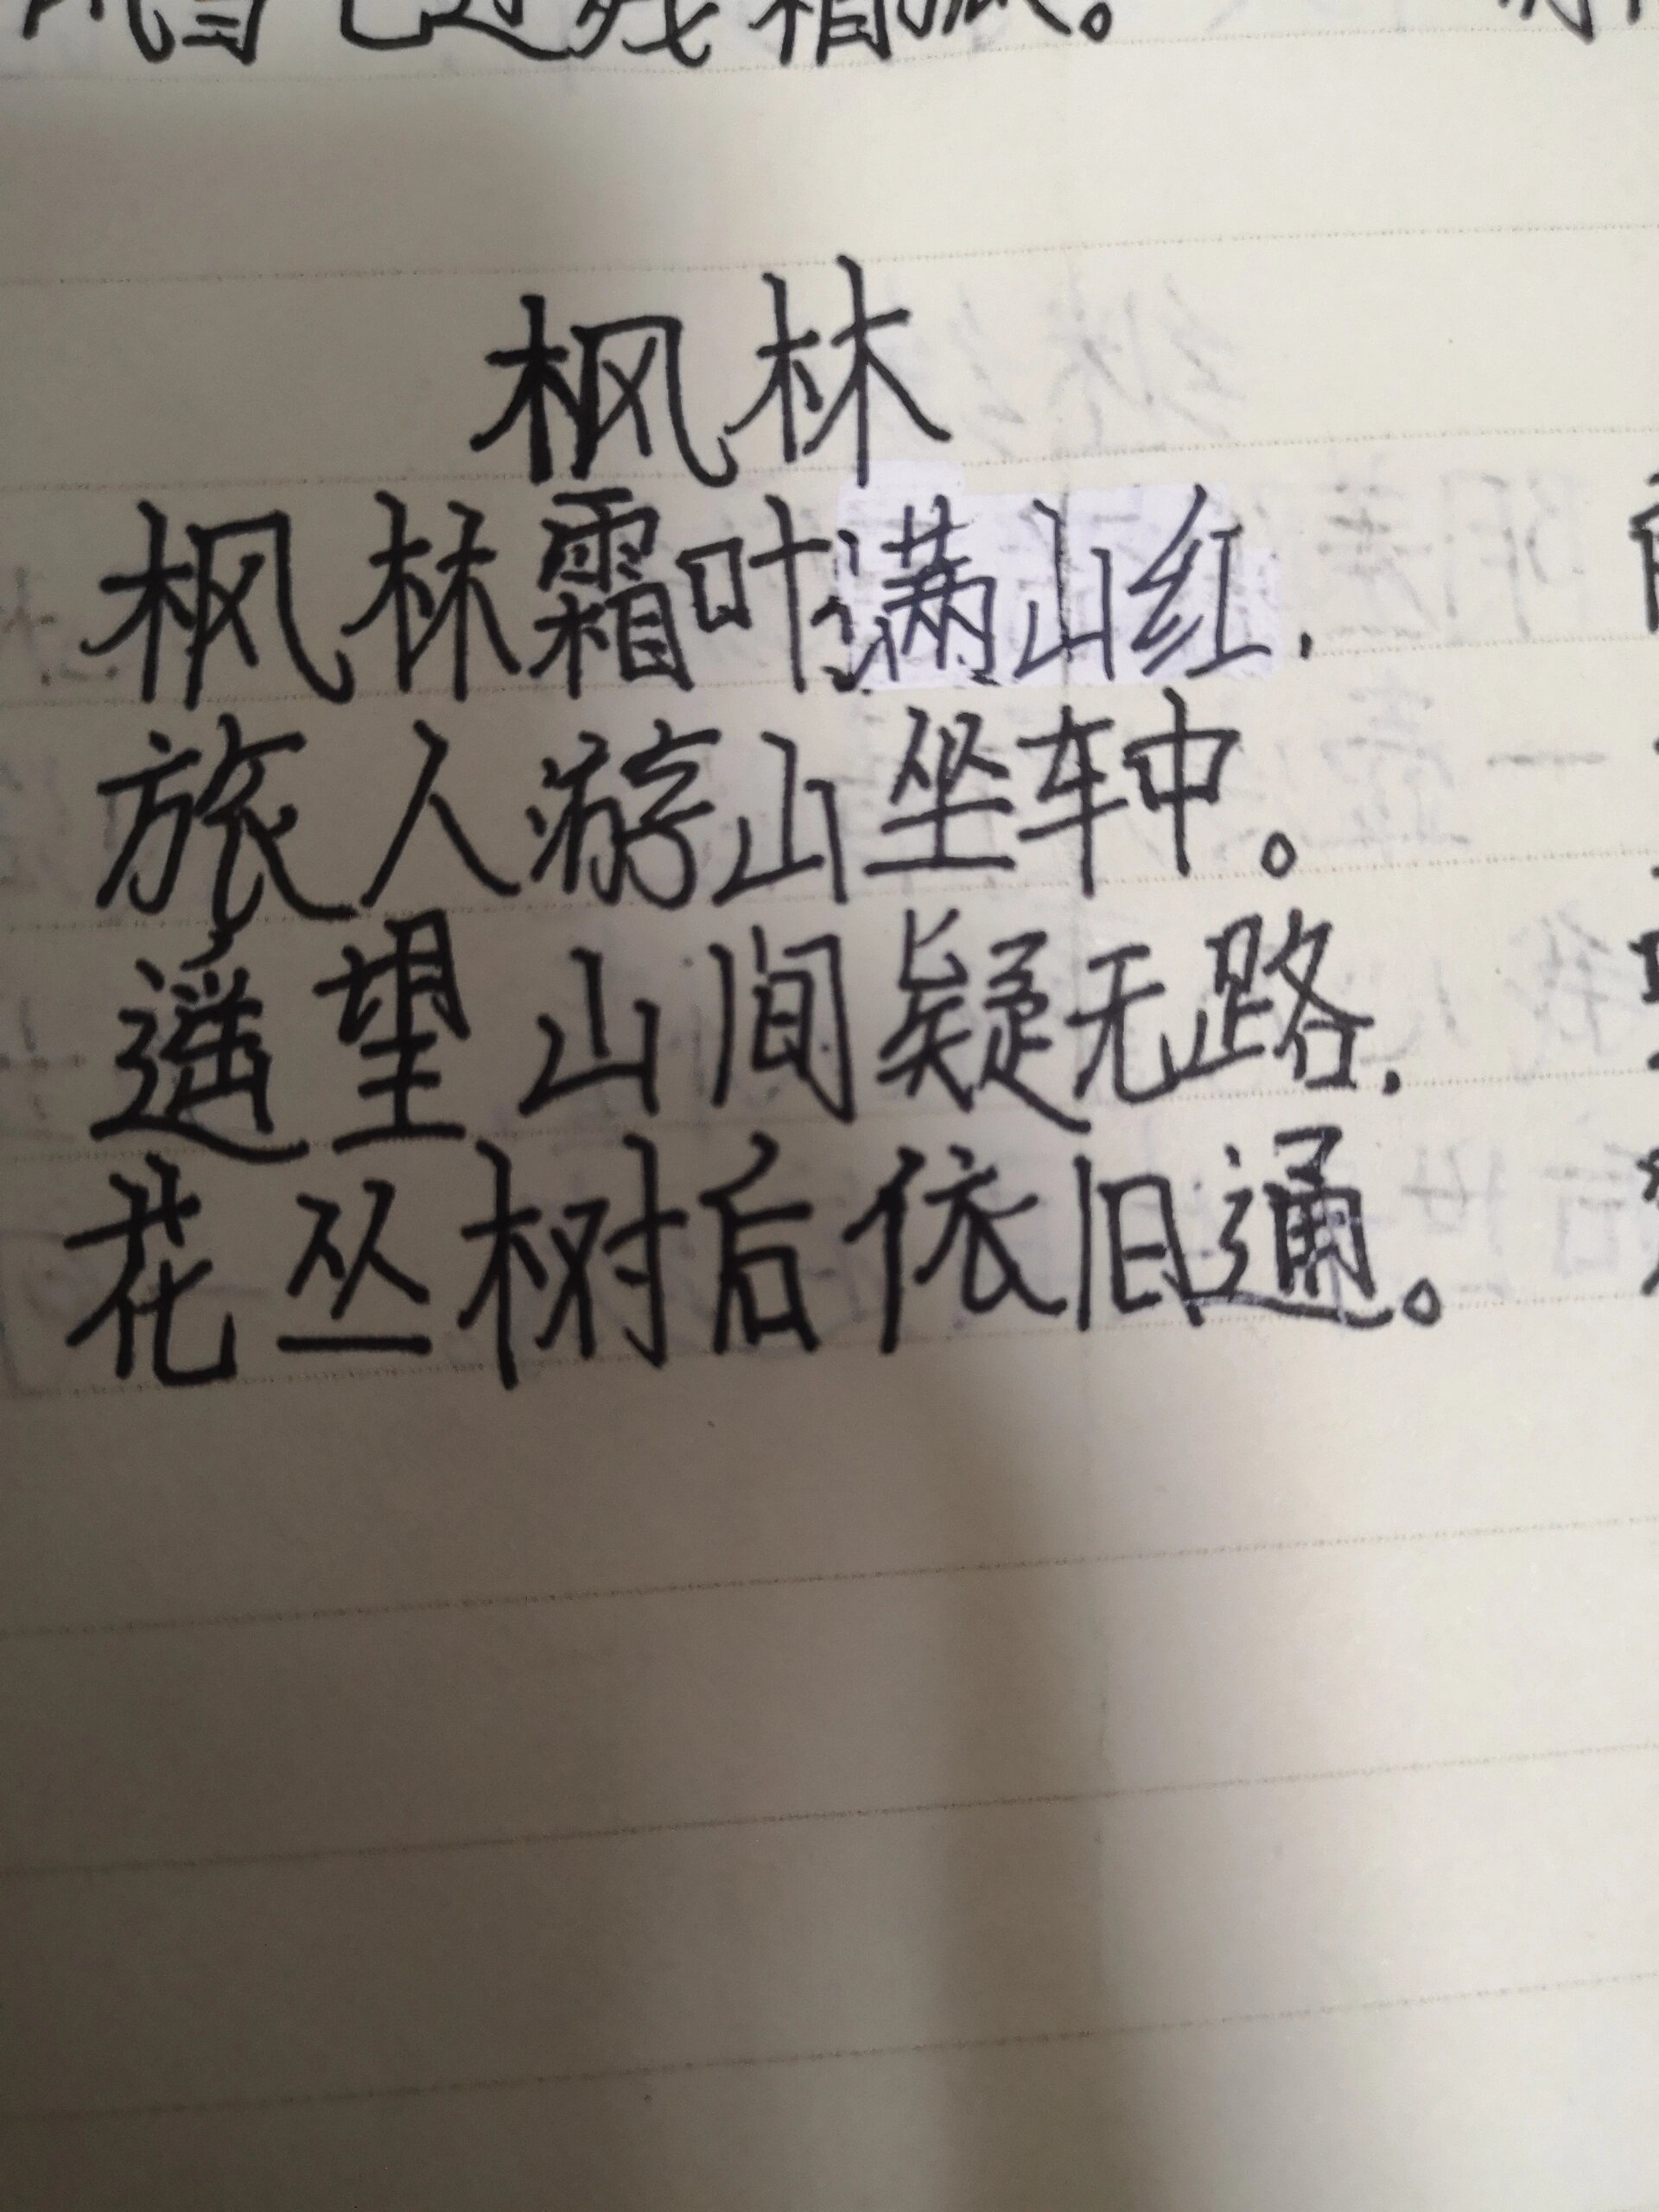 枫林
枫林霜叶满山红，
旅人游山坐车中。
遥望山间疑无路，
花丛树后依旧通。